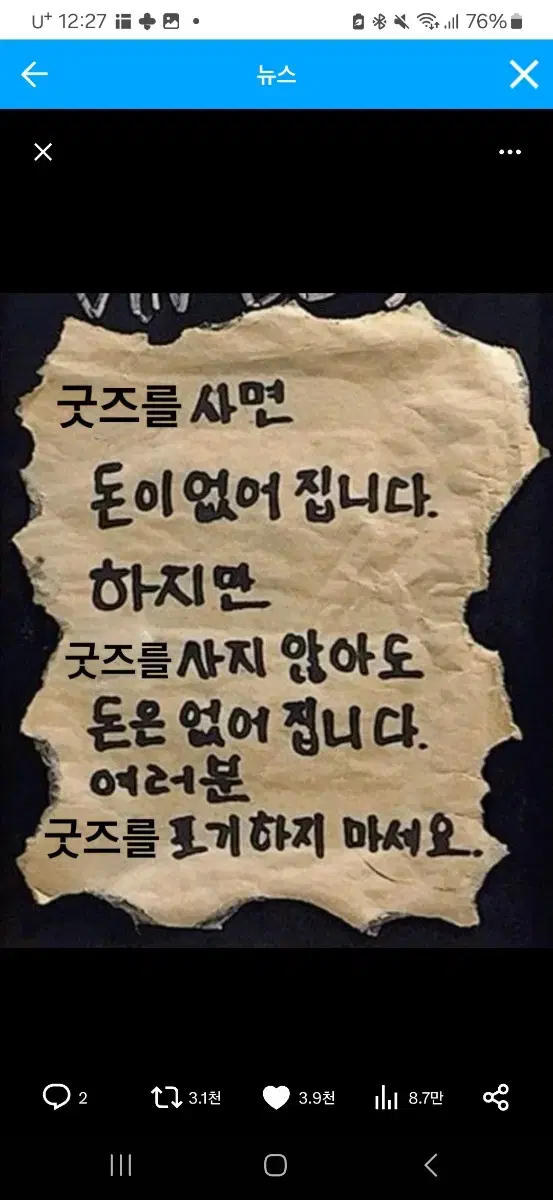 U⁺ 12:27
76%
뉴스
굿즈를 사면
돈이 없어 집니다.
하지만
굿즈를 사지 않아도
돈은 없어 집니다.
여러분
굿즈를 포기하지 마세요.
2 3.1천 3.9천 8.7만